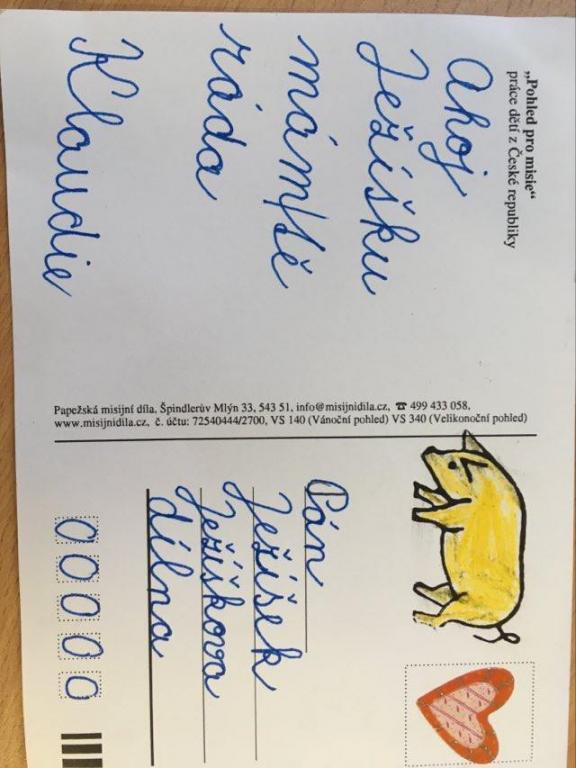 „Pohled pro misie“
práce dětí z České republiky
Ahoj
Ježíšku
mám tě
ráda
Klaudie
Papežská misijní díla, Špindlerův Mlýn 33, 543 51, info@misijnidila.cz, ☎ 499 433 058,
www.misijnidila.cz, č. účtu: 72540444/2700, VS 140 (Vánoční pohled) VS 340 (Velikonoční pohled)
Pán
Ježíšek
Ježíškova
dílna
0 0 0 0 0